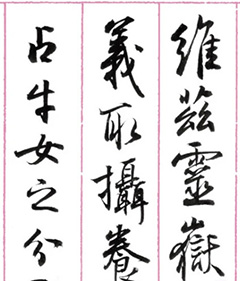 維茲靈嶽
義取攝養
占牛女之分